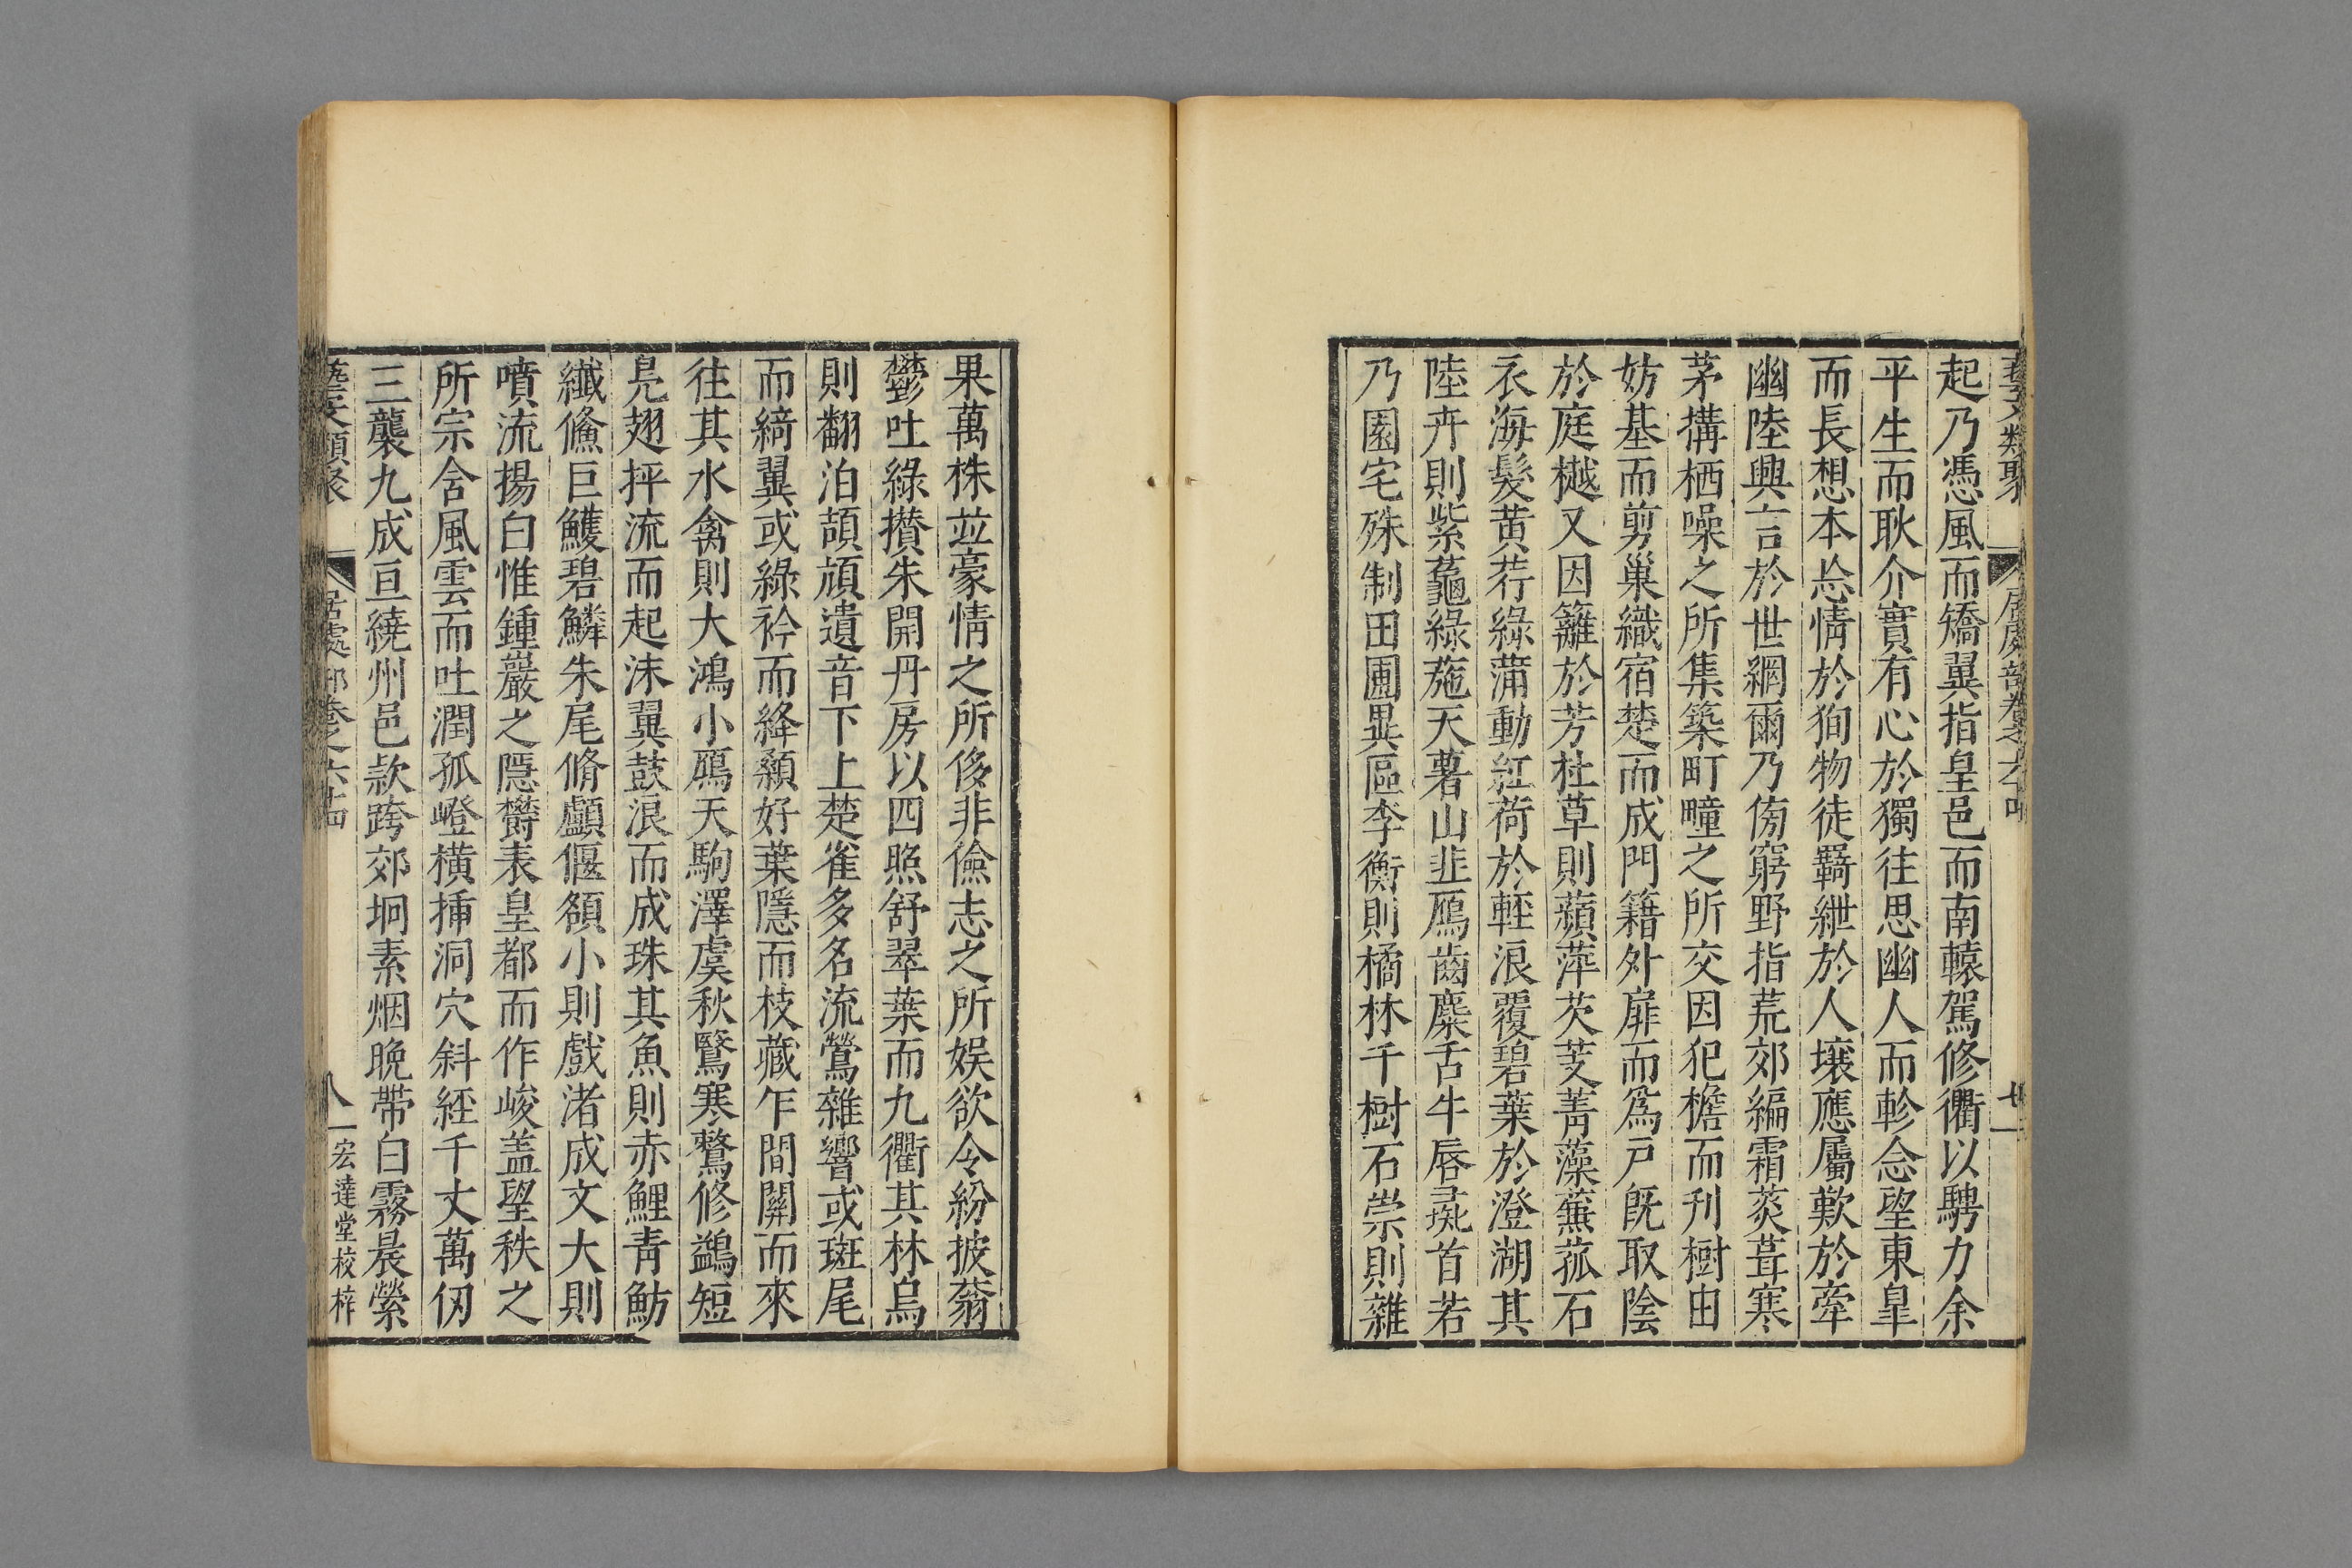 藝文類聚 居處部卷之六十四 廿一
起乃憑風而矯翼指皇邑而南轅駕修衢以騁力余
平生而耿介實有心於獨往思幽人而軫念望東皐
而長想本忘情於狥物徒羇紲於人壤應屬歎於牽
幽陸興言於世網爾乃傍窮野指荒郊編霜菼葺寒
茅構栖噪之所集築町疃之所交因犯檐而刋樹由
妨基而剪巢織宿楚而成門籍外扉而爲戸既取陰
於庭樾又因籬於芳杜草則蘋萍芡芰菁藻蒹菰石
衣海髮黄荇綠蒲動紅荷於輕浪覆碧葉於澄湖其
陸卉則紫虌綠葹天蓍山韭鴈齒麋舌牛唇彘首若
乃園宅殊制田圃異區李衡則橘林千樹石崇則雜
果萬株並豪情之所侈非儉志之所娱欲令紛披蓊
鬱吐綠攅朱開丹房以四照舒翠葉而九衢其林鳥
則翻泊頡頏遺音下上楚雀多名流鶯雜響或斑尾
而綺翼或綠衿而絳顙好葉隱而枝藏乍間關而來
往其水禽則大鴻小鴈天駒澤虞秋鷖寒鶩修鷁短
鳧翅抨流而起沫翼鼓浪而成珠其魚則赤鯉青魴
纖鯈巨鱯碧鱗朱尾脩顱偃額小則戲渚成文大則
噴流揚白惟鍾巖之隱欝表皇都而作峻盖望秩之
所宗含風雲而吐潤孤嶝横揷洞穴斜經千丈萬仞
三襲九成亘繞州邑款跨郊坰素烟晩帶白霧晨縈
藝文類聚 居處部卷之六十四 宏達堂校梓